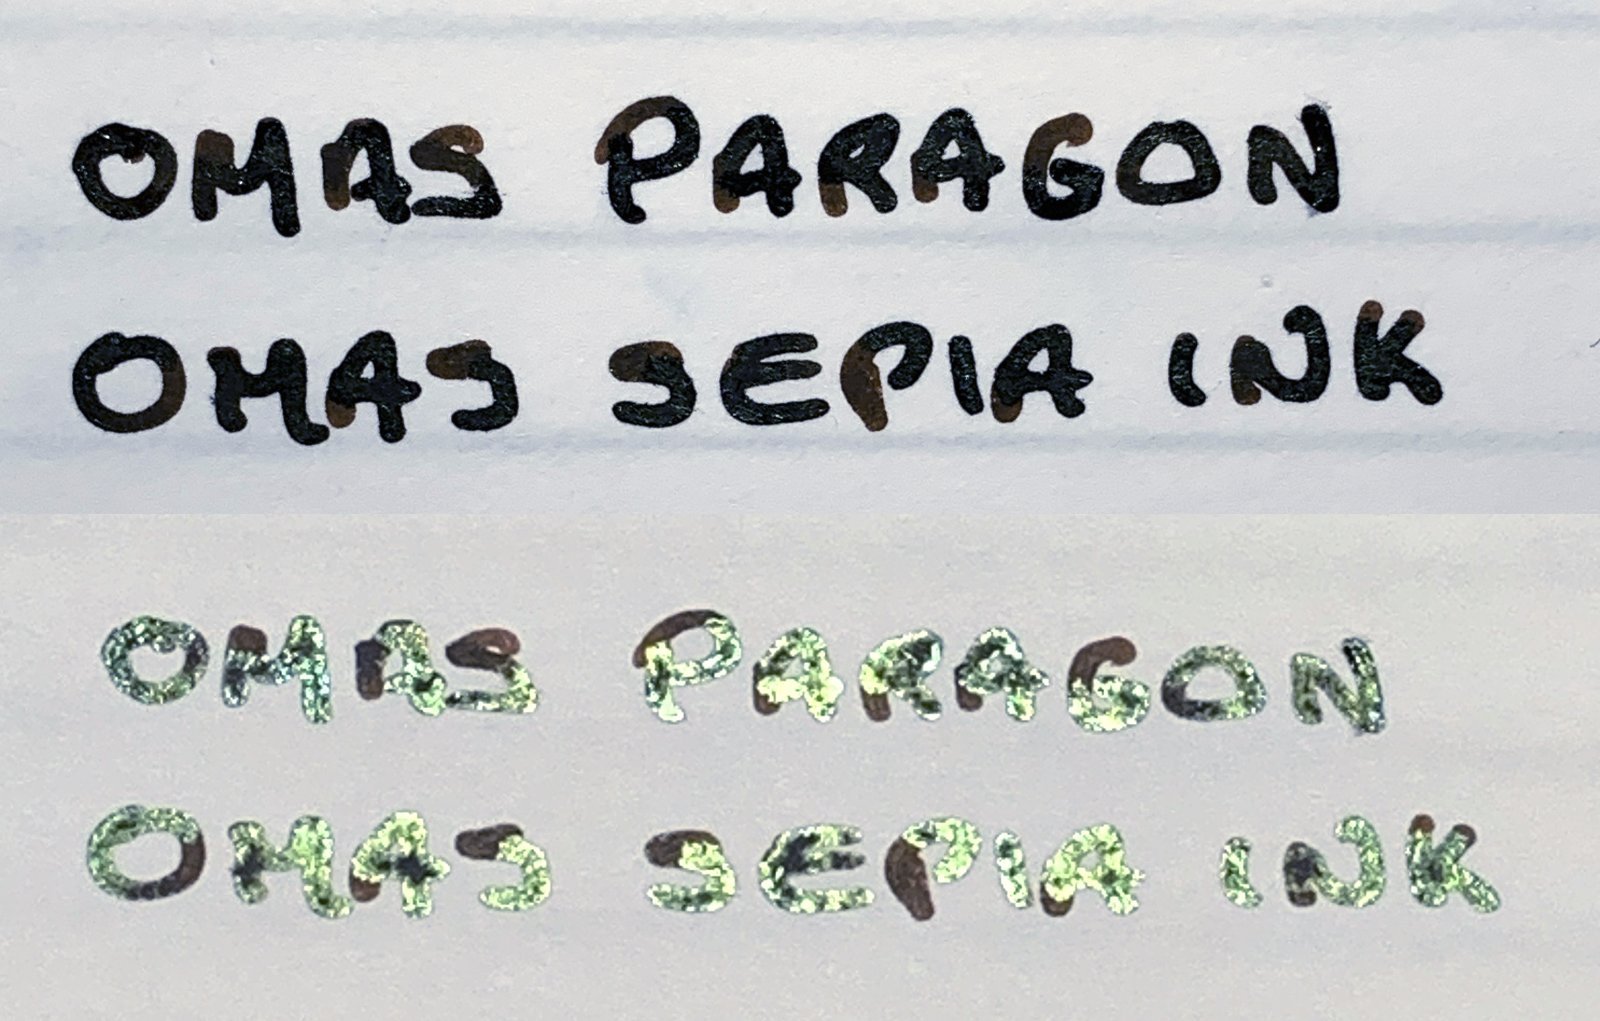 OMAS PARAGON
OMAS SEPIA INK
OMAS PARAGON
OMAS SEPIA INK